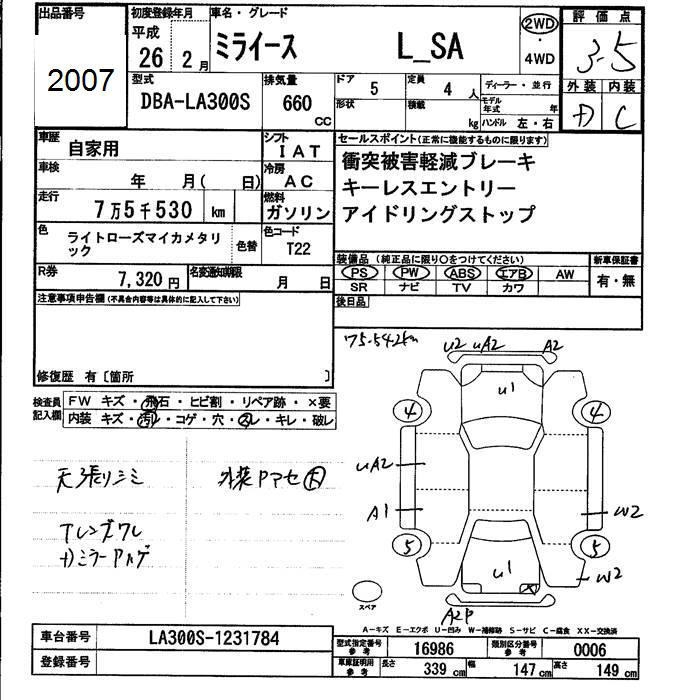 出品番号 初度登録年月 車名・グレード 評価点
2007 平成 26 2月 ミライース L_SA 2WD・4WD 3-5
型式 排気量 ドア 5 定員 4人 ディーラー・並行 外装 内装
DBA-LA300S 660cc 形状 積載 kg モデル年式 年 ハンドル 左・右 C
車歴 自家用 シフト IAT セールスポイント(正常に機能するものに限ります)
車検 年 月( 日) 冷房 AC 衝突被害軽減ブレーキ
キーレスエントリー
走行 7万5千530 km 燃料 ガソリン アイドリングストップ
色 ライトローズマイカメタリック 色替 色コード T22
装備品 (純正品に限り○をつけてください) 新車保証書
R券 7,320円 名変通知期限 月 日 PS PW ABS エアB AW 有・無
SR ナビ TV カワ
注意事項申告欄(不具合内容等は具体的に記入して下さい) 後日品
修復歴 有〔箇所 〕
'75.542km u2 uA2 A2
検査員記入欄 FW キズ・飛石・ヒビ割・リペア跡・×要
内装 キズ・汚レ・コゲ・穴・スレ・キレ・破レ
u1
4 4
uA2
天張りシミ 外装Pアセ大
A1 W2
Tレンズワレ
ミラーAハゲ
5 5
u1 W2
スペア
A2P
A-キズ E-エクボ U-凹み W-補修跡 S-サビ C-腐食 XX-交換済
車台番号 LA300S-1231784 型式指定番号 参考 16986 類別区分番号 参考 0006
登録番号 車庫証明用 参考 長さ 339cm 幅 147cm 高さ 149cm